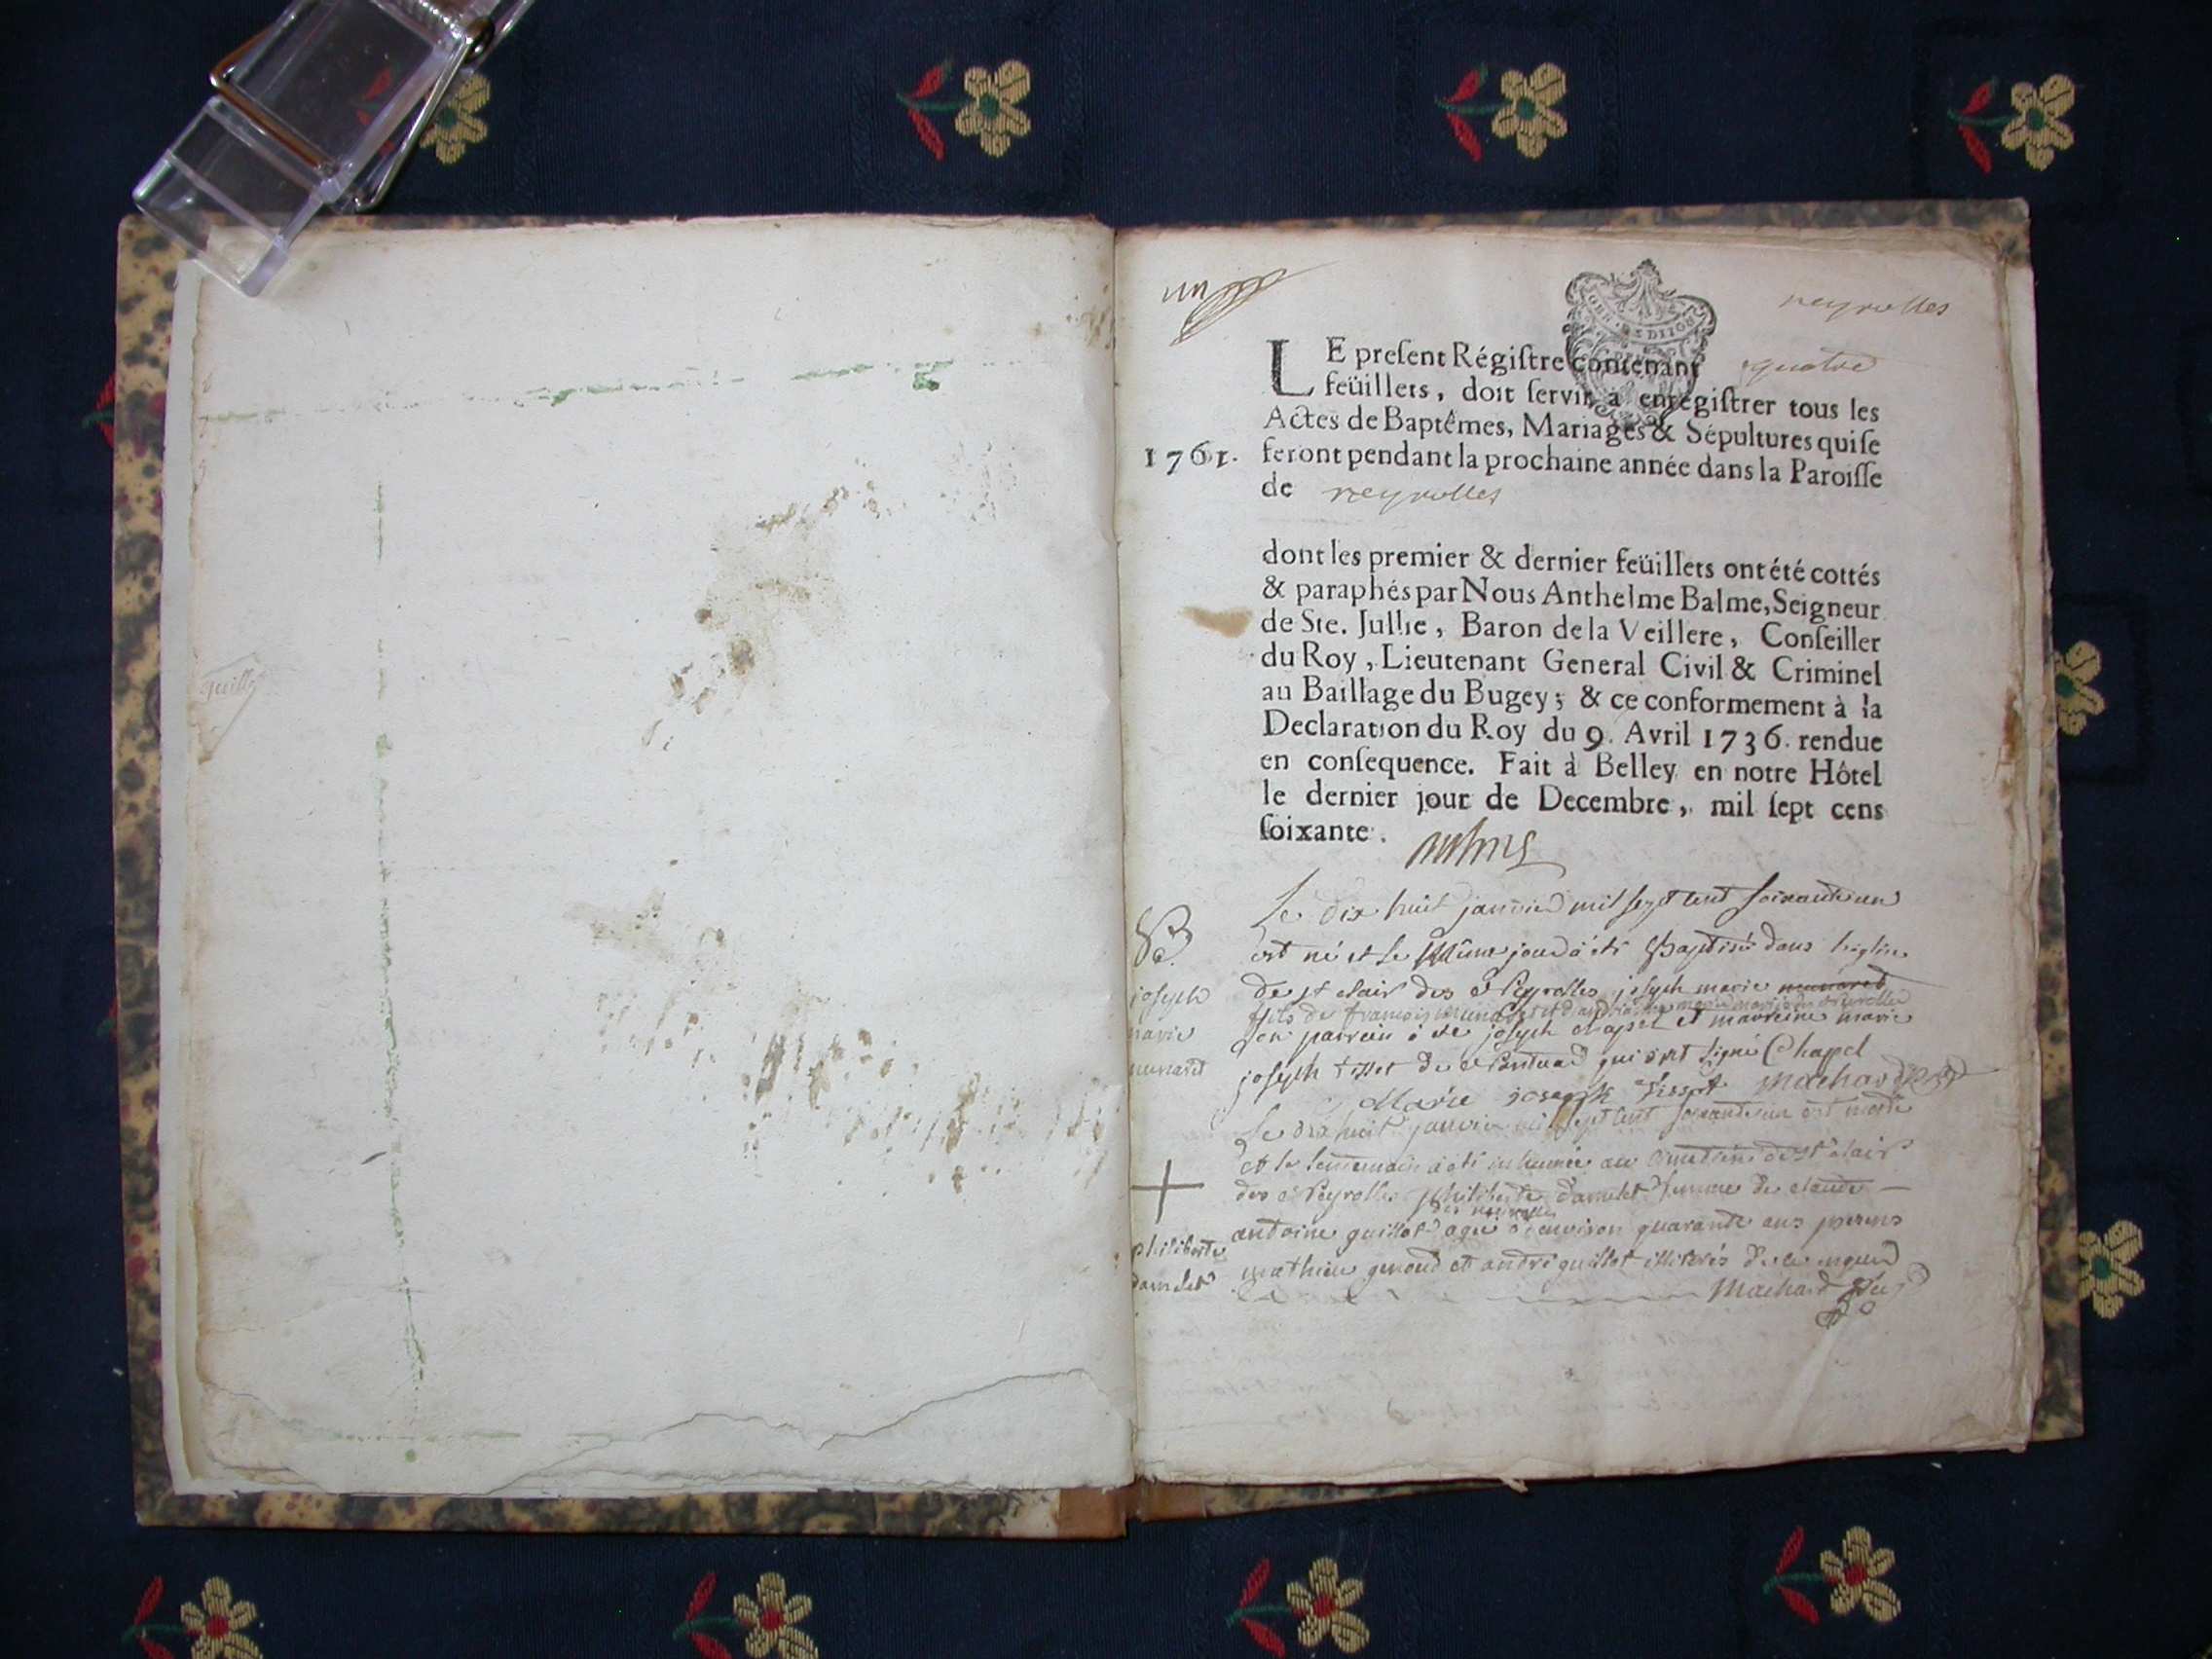 un
neyrolles
GEN. DE DIJON
LE preſent Régiſtre contenant quatre
feüillets, doit ſervir à enregiſtrer tous les
Actes de Baptêmes, Mariages & Sépultures qui ſe
1761. feront pendant la prochaine année dans la Paroiſſe
de neyrolles
dont les premier & dernier feüillets ont été cottés
& paraphés par Nous Anthelme Balme, Seigneur
de Ste. Jullie, Baron de la Veillere, Conſeiller
du Roy, Lieutenant General Civil & Criminel
au Baillage du Bugey; & ce conformement à la
Declaration du Roy du 9. Avril 1736. rendue
en conſequence. Fait à Belley en notre Hôtel
le dernier jour de Decembre, mil ſept cens
ſoixante.
B
joseph
marie
munaret
Le dix huit janvier mil sept cent soixante un
est né et le même jour a été Baptisé dans l'eglise
de st clair des Neyrolles joseph marie munaret
fils de françois munaret
son parrein a été joseph chapel et marreine marie
joseph tissot de qui ont signé Chapel
Marie joseph tissot Machard
+
philiberte
damelet
Le dix huit janvier mil sept cent soixante un est morte
et le lendemain a été inhumée au cimetiere de st clair
des Neyrolles philiberte damelet femme de claude
antoine guillot des neyrolles agée d'environ quarante ans presens
mathieu genoud et andré guillot illiterés de ce enquis
Machard